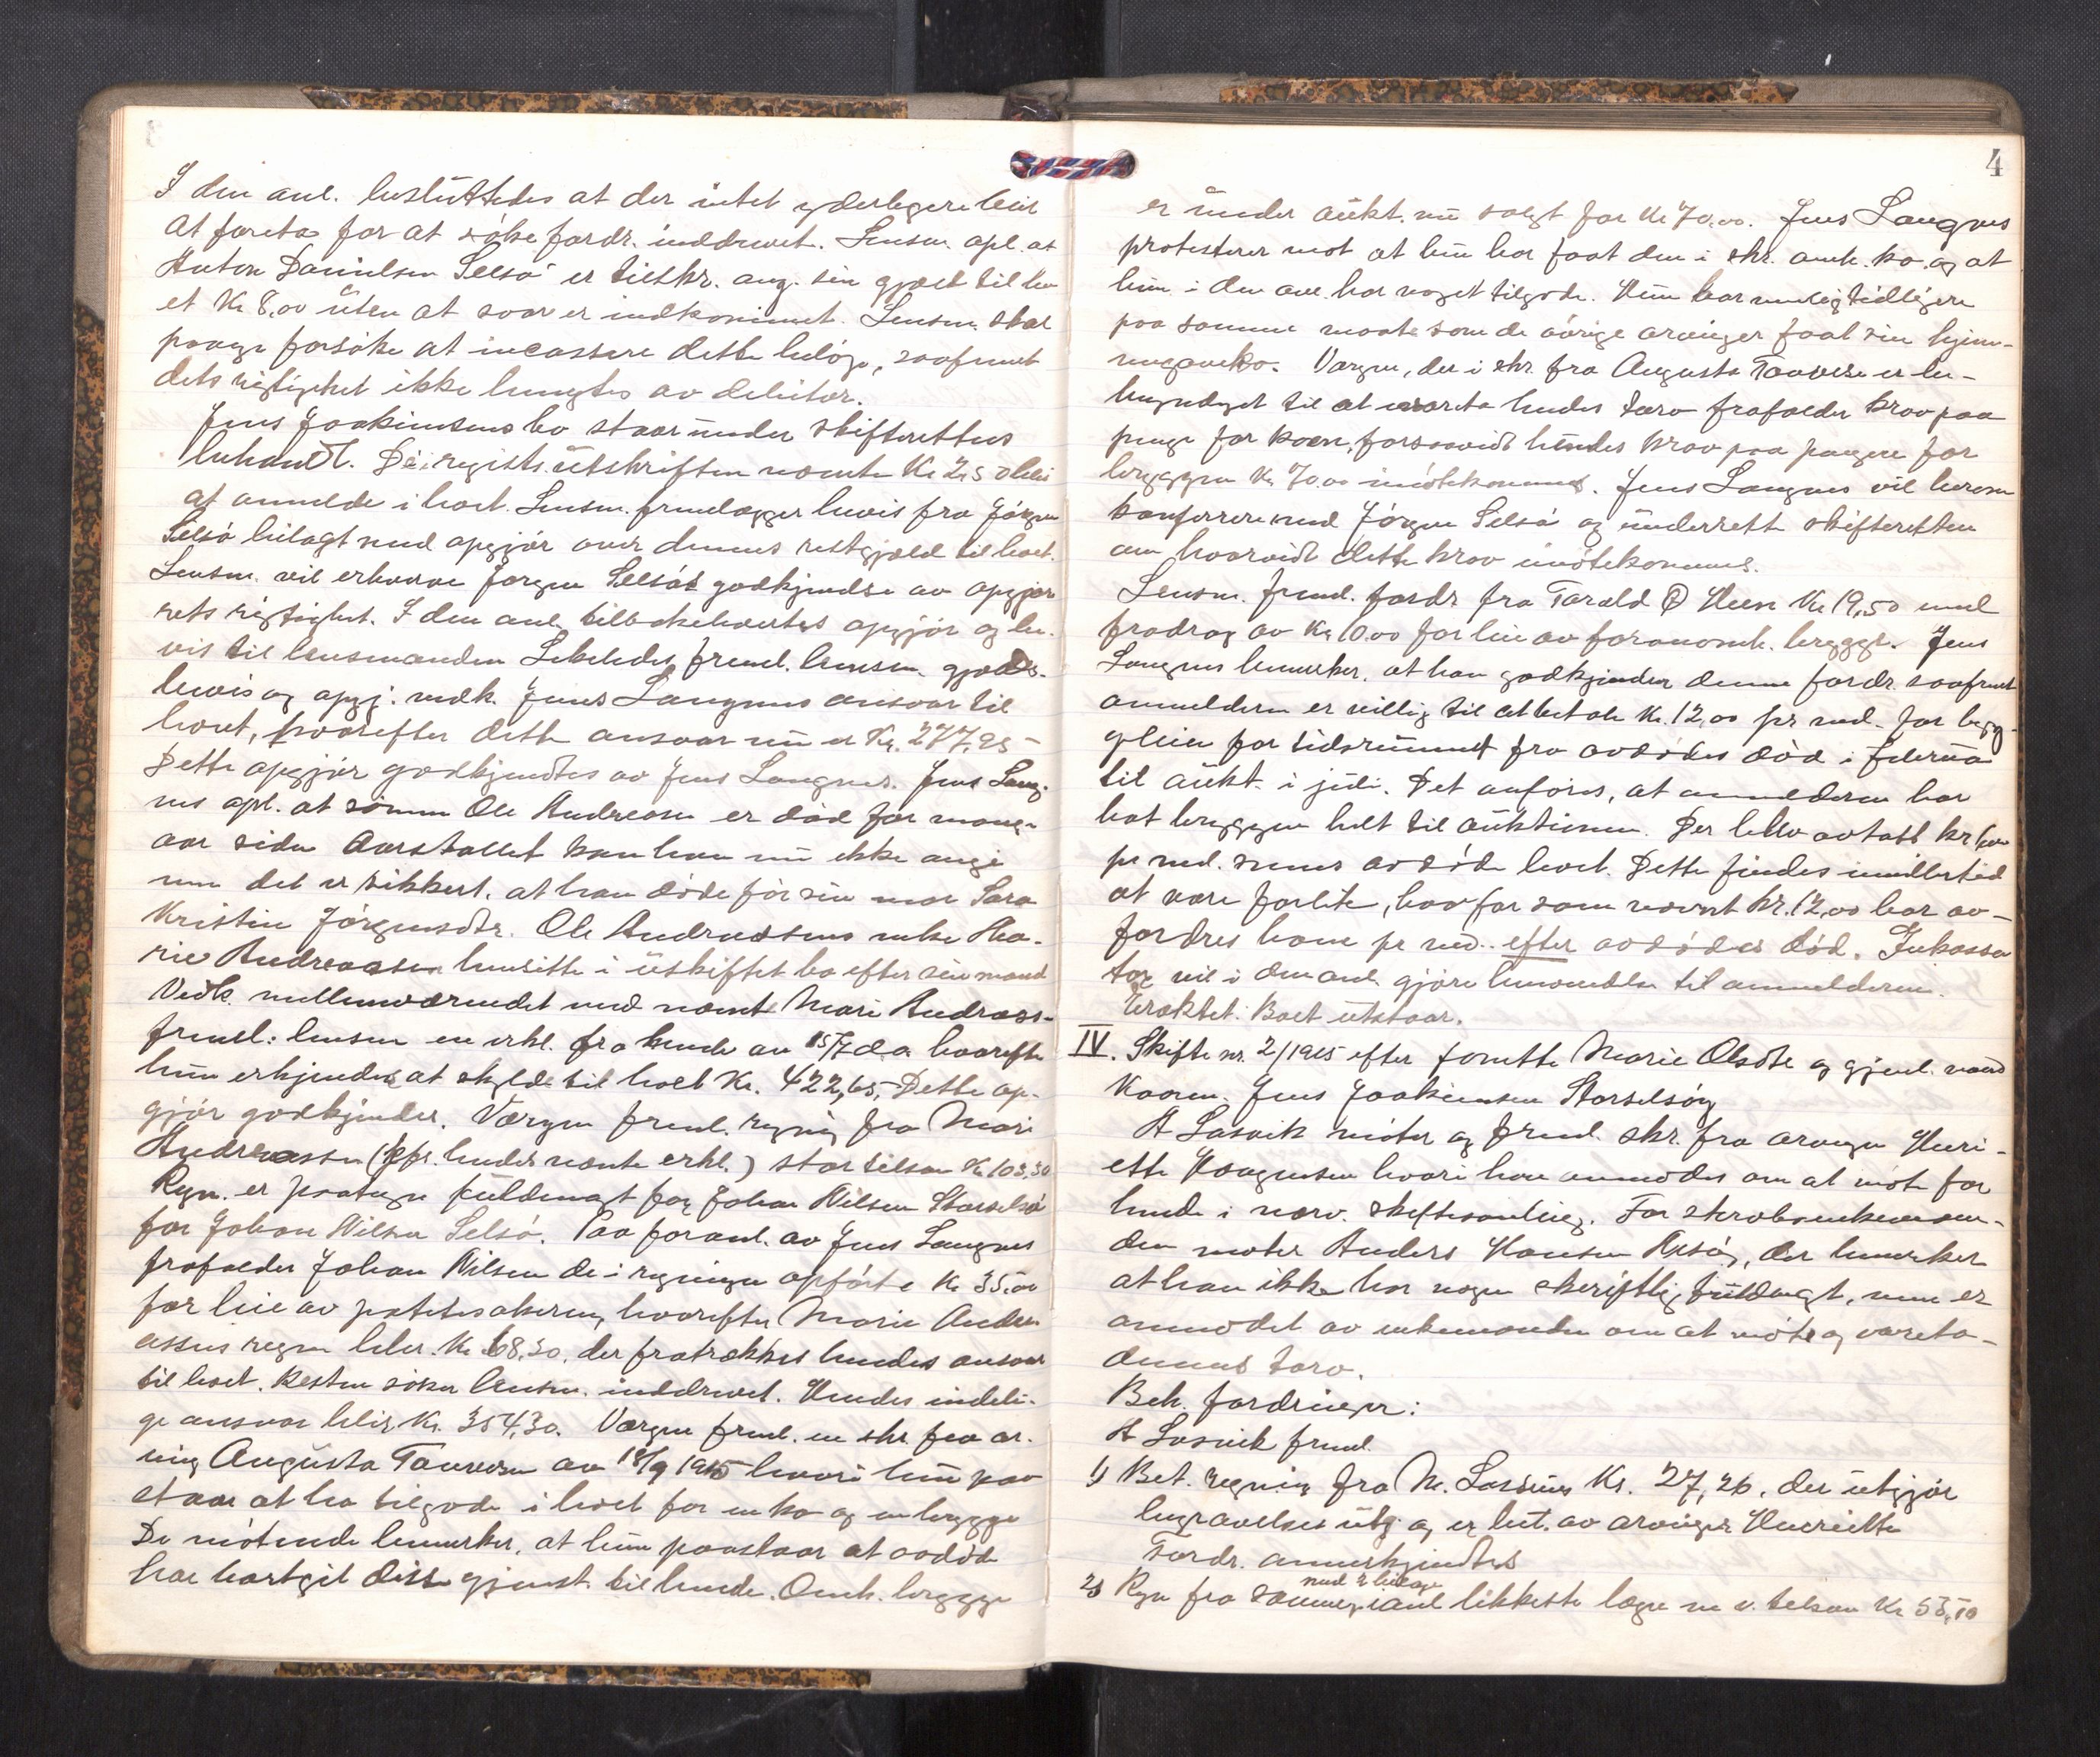 I den anl. besluttedes at der intet yderligere blir
at foreta for at søke fordr. inddrevet. Lensm. opl. at
Anton Danielsen Selsø er tilskr. ang. sin gjæld til bo
et Kr 8,00 uten at svar er indkommet. Lensm. skal
paany forsøke at incassere dette beløp, saafremt
dets rigtighet ikke benegtes av debitor.
Jens Joakimsens bo staar under skifterettens
behandl. De i regists. utskriften nævnte Kr 2,50 blir
at anmelde i boet. Lensm. fremlægger bevis fra Jørgen
Selsø bilagt med opgjør over dennes restgjæld til boet.
Lensm. vil erhverve Jørgen Selsøs godkjendelse av opgjø-
rets rigtighet. I den anl. tilbakelevertes opgjør og be-
vis til lensmanden Likeledes freml. lensm. gjælds-
bevis og opgj. vedk. Jens Langnes ansvar til
boet, hvorefter dette ansvar nu er Kr. 277,25
Dette opgjør godkjendtes av Jens Langnes. Jens Lang-
nes opl. at sønnen Ole Andreasen er død for mange
aar siden Aarstallet kan han nu ikke angi
men det er sikkert, at han døde før sin mor Sara
Kristine Jørgensdtr. Ole Andreasens enke Ma-
rie Andreassen hensitter i uskiftet bo efter sin mand
Vedk. mellemværendet med nævnte Marie Andreas-
freml. lensm en erkl. fra hende av 15/7 d.a. hvorefter
hun erkjender at skylde til boet Kr. 422,65. Dette op-
gjør godkjendes. Værgen freml. regning fra Marie
Andreassen (jfr. hendes nævnte erkl.) stor tilsam Kr 103,30
Regn. er paategn. fuldmagt for Johan Nilsen Storselsø
for Johan Nilsen Selsø. Paa foranl. av Jens Langnes
frafalder Johan Nilsen de i regningen opførte Kr 35,00
for leie av potetesakeren, hvorefter Marie Andre-
assens regn blir Kr. 68,30, der fratrækkes hendes ansvar
til boet. Resten søker lensm. inddrevet. Hendes endeli-
ge ansvar blir Kr. 354,30. Værgen freml. en skr. fra ar-
ving Augusta Tanvesen av 18/9 1915 hvori hun paa-
staar at ha tilgode i boet for en ko og en brygge
De møtende bemerker, at hun paastaar at avdøde
har bortgit disse gjenst. til hende. Omh. brygge
4
er under aukt. nu solgt for Kr 70,00. Jens Langnes
protesterer mot at hun har faat den i skr. omh. ko og at
hun i den anl. har noget tilgode. Hun har nemlig tidligere
paa samme maate som de øvrige arvinger faat sin hjem-
megaveko. Værgen, der i skr. fra Augusta Tanvesen er be-
myndiget til at vareta hendes tarv frafalder krav paa
penge for koen, forsaavidt hendes krav paa pengene for
bryggen Kr 70.00 imøtekommes. Jens Langnes vil herom
konferere med Jørgen Selsø og underrette skifteretten
om hvorvidt dette krav imøtekommes.
Lensm. freml. fordr. fra Tarald Heen Kr 19,50 med
fradrag av Kr 10.00 for leie av forannevnte brygge. Jens
Langnes bemerker, at han godkjender denne fordr. saafremt
anmelderen er villig til at betale Kr. 12,00 pr md. for bryg-
geleien for tidsrummet fra avdødes død i februar
til aukt. i juli. Det anføres, at anmelderen har
hat bryggen helt til auktionen. Der blev avtalt kr
pr md. mens avdøde levet. Dette findes imidlertid
at være forlite, hvorfor som nævnt kr. 12,00 bør av-
fordres ham pr md. efter avdødes død. Inkassa
tor vil i den anl. gjøre henvendelse til anmelderen.
Eraktet: Boet utstaar.
IV. Skifte nr. 2/1915 efter forrette Marie Olsdtr og gjenl. mand
Kaarm. Jens Joakimsen Storselsøy
A Lasvik møter og freml. skr. fra arvingen Henri-
ette Haagensen hvori han anmodes om at møte for
hende i nærv. skiftesamling. For
den møter Anders Hansen Alsøy, der bemerker
at han ikke har nogen skriftlig fuldmagt, men er
anmodet av enkemanden om at møte og vareta
dennes tarv.
Beh. fordringer:
A Lasvik freml.
1) Bet. regning fra M. Lassens Kr. 27,26, der utgjør
begravelses utg. og er bet. av arvingen Henriette
Fordr. anmerkjendtes
2) Regn fra samme med 2 bilage likkiste lagn m v. tilsam Kr 53,10